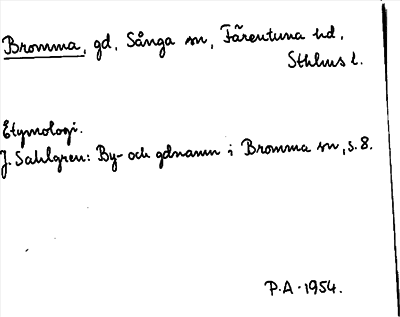 Bromma, gd, Sånga sn, Färentuna hd,
Sthlms l.
Etymologi.
J. Sahlgren: By- och gdnamn i Bromma sn, s. 8.
P.A. 1954.